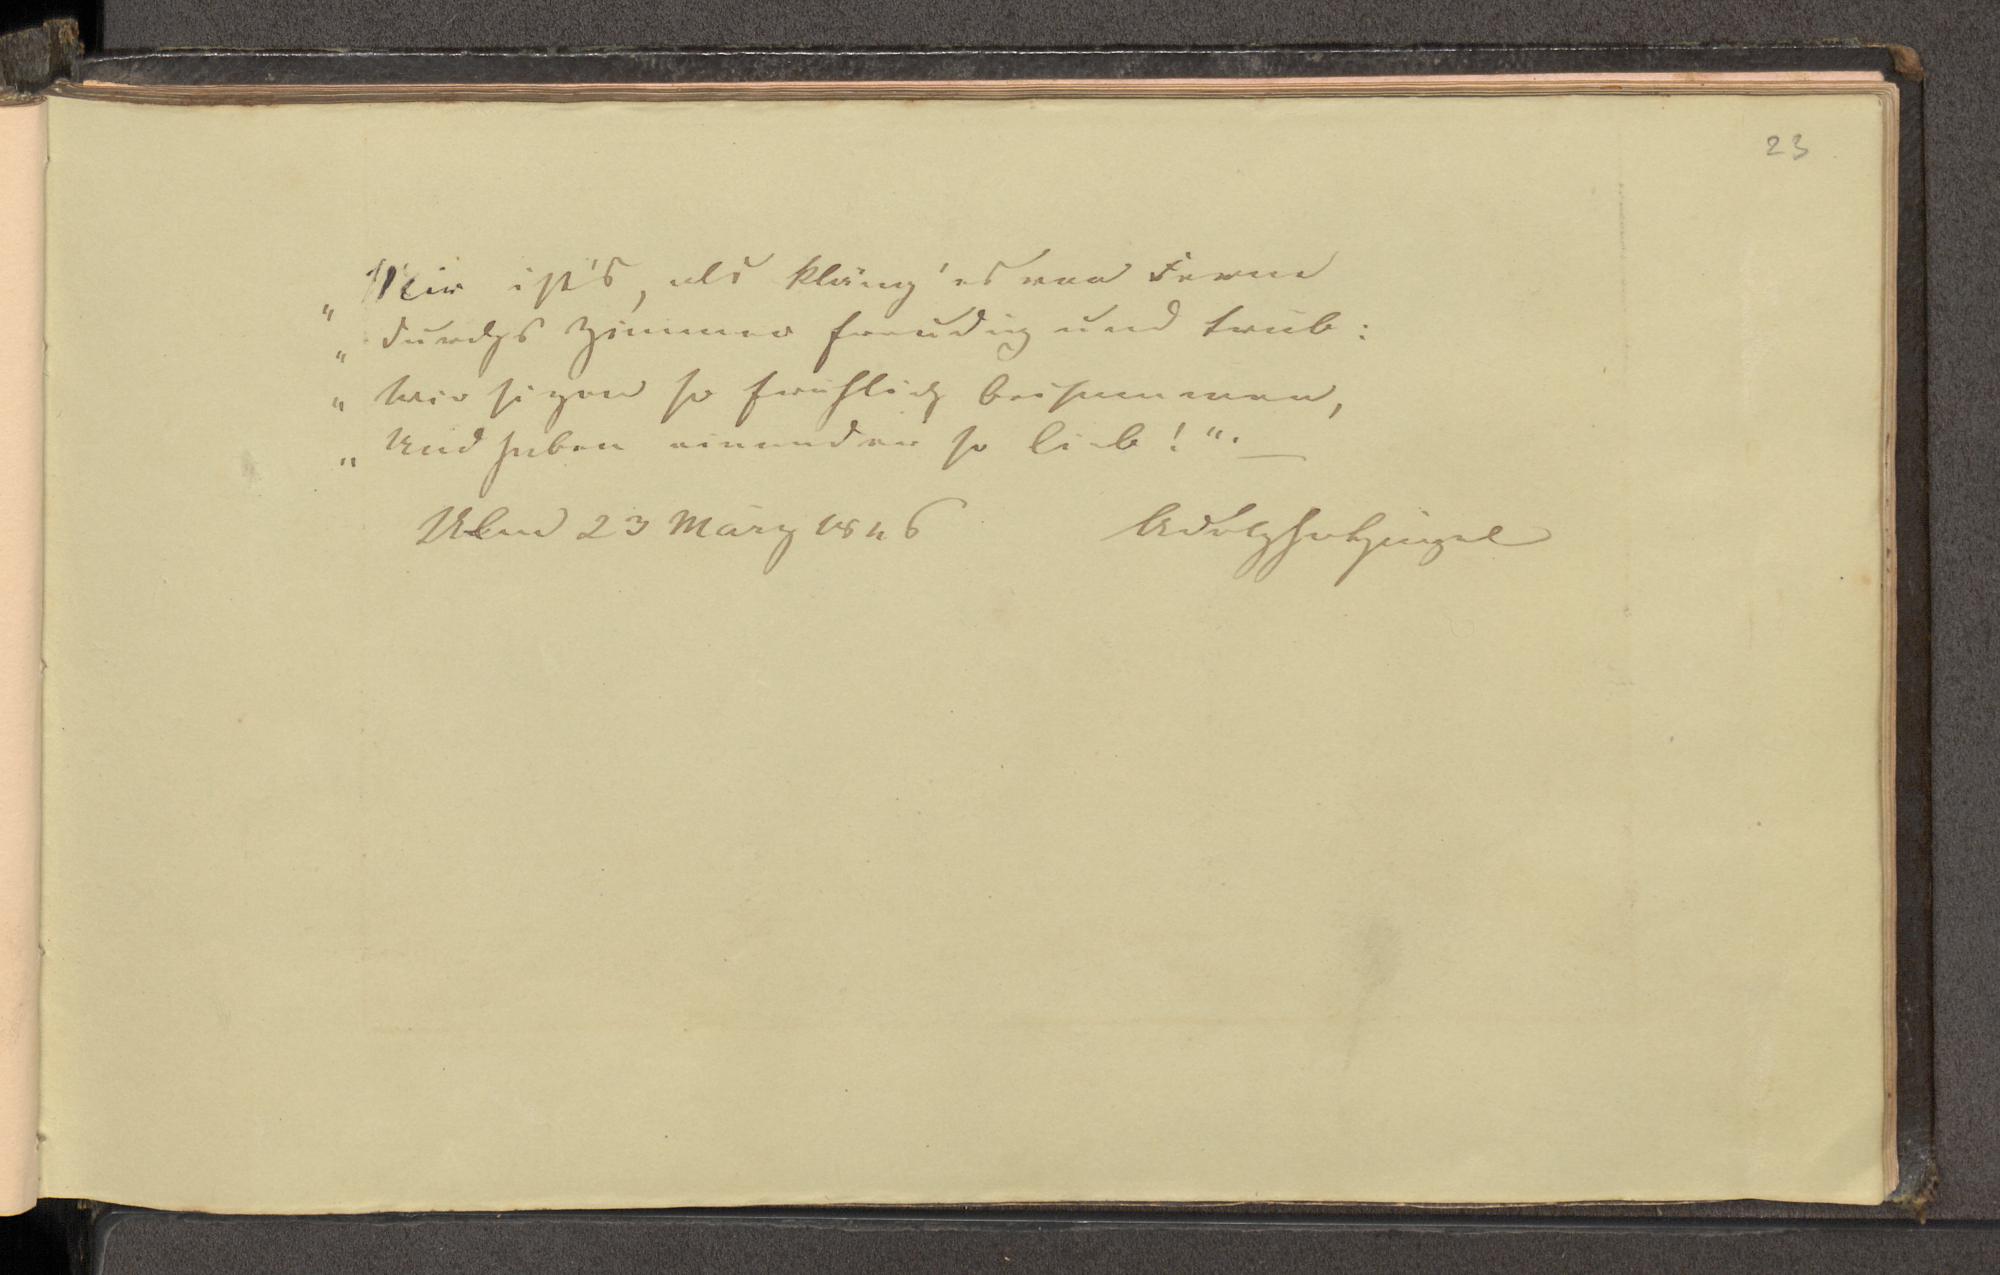 23
„Mir ist's, als kläng' es von Ferne
„durchs Zimmer freudig und trüb:
„wir sizen so fröhlich beisammen,
„Und haben einander so lieb!". —
23 März 1846 Adolf